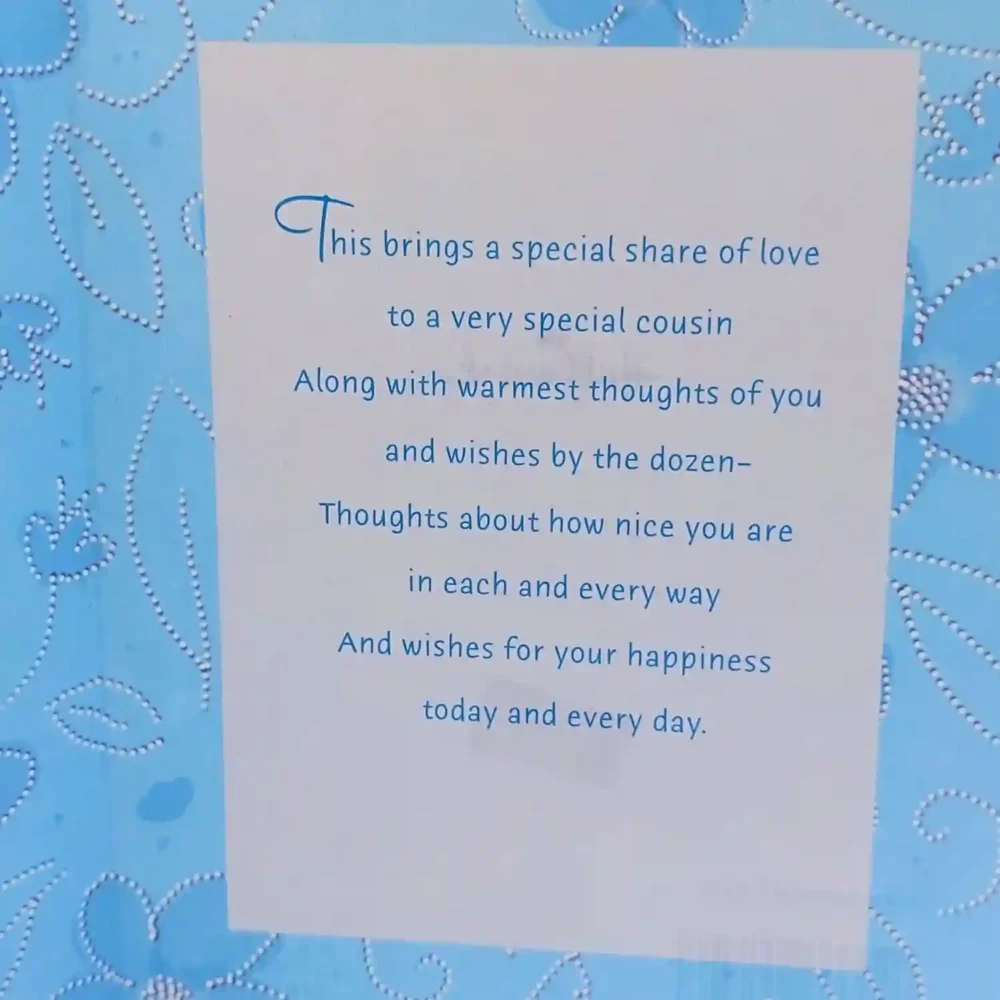 This brings a special share of love
to a very special cousin
Along with warmest thoughts of you
and wishes by the dozen–
Thoughts about how nice you are
in each and every way
And wishes for your happiness
today and every day.